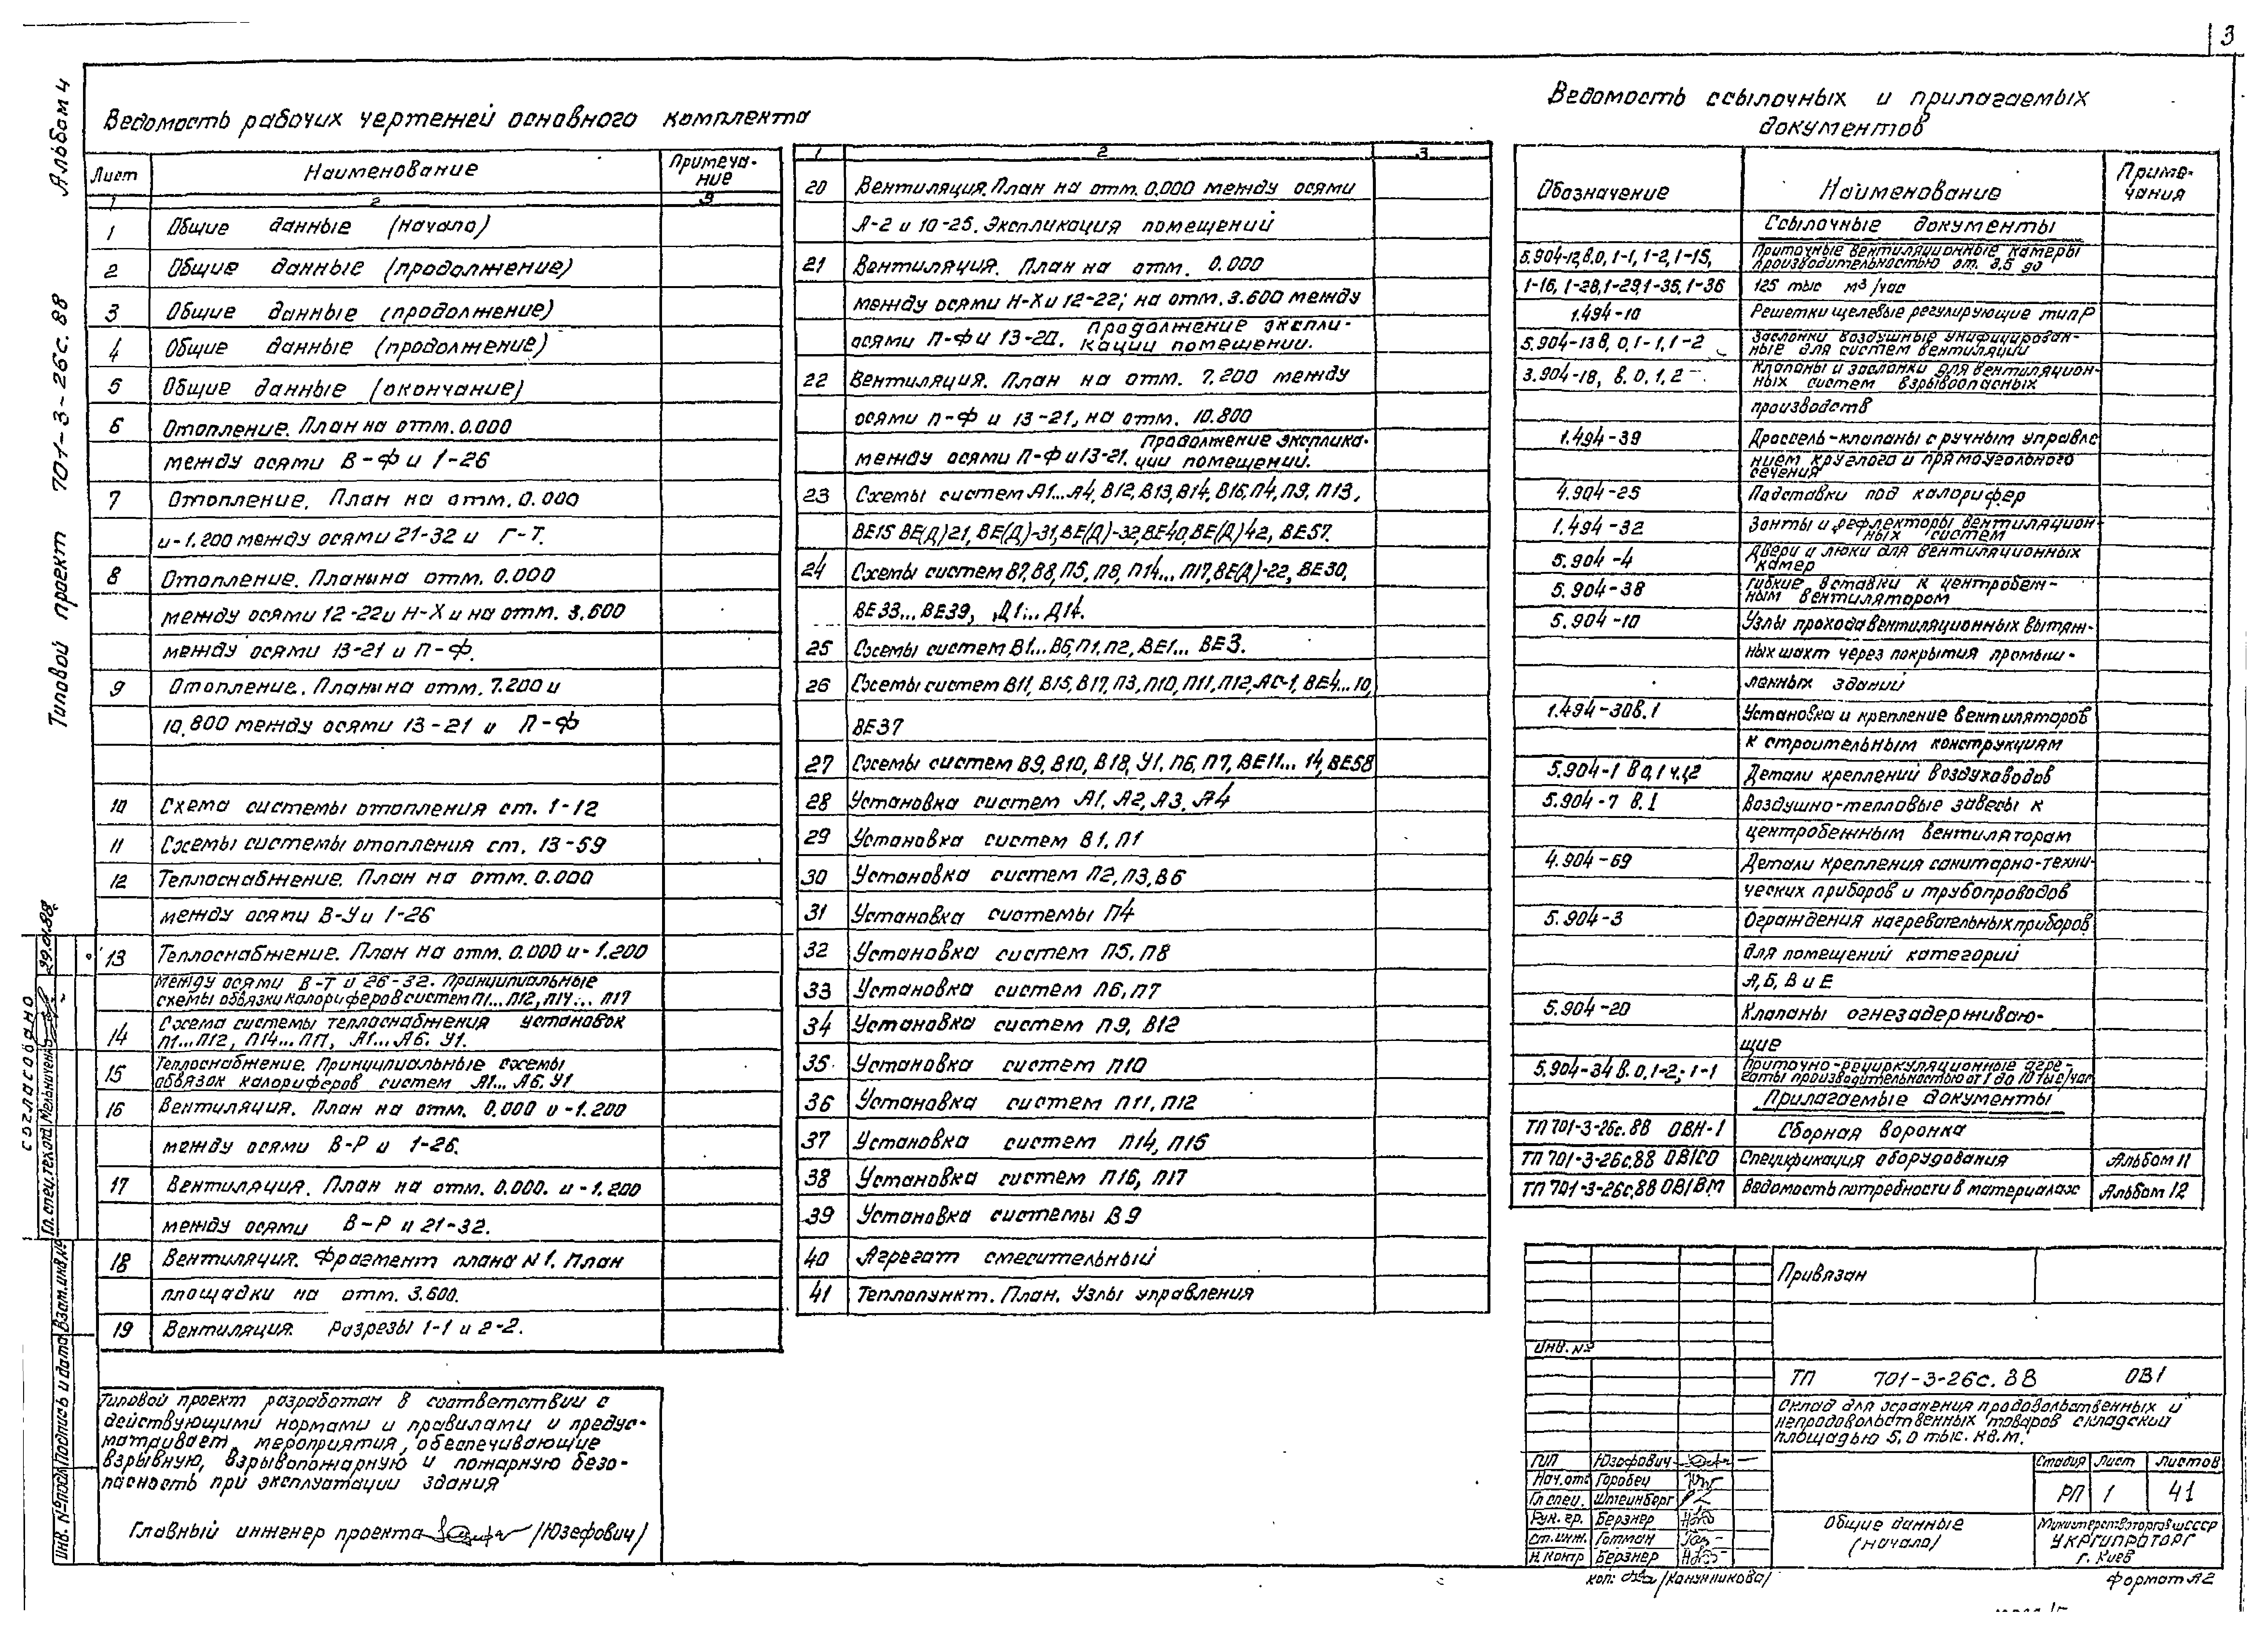 3
Альбом 4
Типовой проект 701-3-26с.88
Ведомость рабочих чертежей основного комплекта
Лист Наименование Примеча-
ние
1 2 3
1 Общие данные (начало)
2 Общие данные (продолжение)
3 Общие данные (продолжение)
4 Общие данные (продолжение)
5 Общие данные (окончание)
6 Отопление. План на отм. 0.000
между осями В-Ф и 1-26
7 Отопление. План на отм. 0.000
и-1.200 между осями 21-32 и Г-Т.
8 Отопление. Планы на отм. 0.000
между осями 12-22 и Н-Х и на отм. 3.600
между осями 13-21 и П-Ф.
9 Отопление. Планы на отм. 7.200 и
10.800 между осями 13-21 и П-Ф
10 Схема системы отопления ст. 1-12
11 Схемы системы отопления ст. 13-59
12 Теплоснабжение. План на отм. 0.000
между осями В-У и 1-26
13 Теплоснабжение. План на отм. 0.000 и-1.200
между осями В-Т и 26-32. Принципиальные
схемы обвязки калориферов систем П1...П12, П14... П17
14 Схема системы теплоснабжения установок
П1...П12, П14...П17, А1...А6. У1.
15 Теплоснабжение. Принципиальные схемы
обвязок калориферов систем А1... А6. У1
16 Вентиляция. План на отм. 0.000 и-1.200
между осями В-Р и 1-26.
17 Вентиляция. План на отм. 0.000. и-1.200
между осями В-Р и 21-32.
18 Вентиляция. Фрагмент плана N1. План
площадки на отм. 3.600.
19 Вентиляция. Разрезы 1-1 и 2-2.
1 2 3
20 Вентиляция. План на отм. 0.000 между осями
А-2 и 10-25. Экспликация помещений
21 Вентиляция. План на отм. 0.000
между осями Н-Х и 12-22; на отм. 3.600 между
осями П-Ф и 13-20. Продолжение экспли-
кации помещений.
22 Вентиляция. План на отм. 7.200 между
осями П-Ф и 13-21, на отм. 10.800
между осями П-Ф и 13-21. Продолжение эксплика-
ции помещений.
23 Схемы систем А1...А4, В12, В13, В14, В16, П4, П9, П13,
ВЕ15 ВЕ(Д)21, ВЕ(Д)-31, ВЕ(Д)-32, ВЕ40, ВЕ(Д)42, ВЕ57.
24 Схемы систем В7, В8, П5, П8, П14... П17, ВЕ(Д)-22, ВЕ30,
ВЕ33... ВЕ39, Д1... Д14.
25 Схемы систем В1...В6, П1, П2, ВЕ1... ВЕ3.
26 Схемы систем В11, В15, В17, П3, П10, П11, П12, АС-1, ВЕ4...10,
ВЕ37
27 Схемы систем В9, В10, В18, У1, П6, П7, ВЕ11... 14, ВЕ58
28 Установка систем А1, А2, А3, А4
29 Установка систем В1, П1
30 Установка систем П2, П3, В6
31 Установка системы П4
32 Установка систем П5, П8
33 Установка систем П6, П7
34 Установка систем П9, В12
35 Установка систем П10
36 Установка систем П11, П12
37 Установка систем П14, П15
38 Установка систем П16, П17
39 Установка системы В9
40 Агрегат смесительный
41 Теплопункт. План. Узлы управления
Ведомость ссылочных и прилагаемых
документов
Обозначение Наименование Приме-
чания
Ссылочные документы
5.904-12, В.0, 1-1, 1-2, 1-15, Приточные вентиляционные камеры
производительностью от 3,5 до
1-16, 1-28, 1-29, 1-35, 1-36 125 тыс м³/час
1.494-10 Решетки щелевые регулирующие тип Р
5.904-13 В, 0, 1-1, 1-2 Заслонки воздушные унифицирован-
ные для систем вентиляции
3.904-18, В. 0, 1, 2 Клапаны и заслонки для вентиляцион-
ных систем взрывоопасных
производств
1.494-39 Дроссель-клапаны с ручным управле
нием круглого и прямоугольного
сечения
4.904-25 Подставки под калорифер
1.494-32 Зонты и дефлекторы вентиляцион-
ных систем
5.904-4 Двери и люки для вентиляционных
камер
5.904-38 Гибкие вставки к центробеж-
ным вентиляторам
5.904-10 Узлы прохода вентиляционных вытяж-
ных шахт через покрытия промыш-
ленных зданий
1.494-30В.1 Установка и крепление вентиляторов
к строительным конструкциям
5.904-1 В 0,1 ч.1,2 Детали креплений воздуховодов
5.904-7 В.1 Воздушно-тепловые завесы к
центробежным вентиляторам
4.904-69 Детали крепления санитарно-техни-
ческих приборов и трубопроводов
5.904-3 Ограждения нагревательных приборов
для помещений категорий
А, Б, В и Е
5.904-20 Клапаны огнезадерживаю-
щие
5.904-34 В. 0, 1-2; 1-1 Приточно-рециркуляционные агре-
гаты производительностью от 1 до 10 тыс/час
Прилагаемые документы
ТП 701-3-26с.88 ОВН-1 Сборная воронка
ТП 701-3-26с.88 ОВ1СО Спецификация оборудования Альбом 11
ТП 701-3-26с.88 ОВ1ВМ Ведомость потребности в материалах Альбом 12
Типовой проект разработан в соответствии с
действующими нормами и правилами и предус-
матривает мероприятия, обеспечивающие
взрывную, взрывопожарную и пожарную безо-
пасность при эксплуатации здания
Главный инженер проекта /Юзефович/
Согласовано
Гл. спец. тех. отд Мельниченко 29.01.88
Инв. № подл. Подпись и дата Взам. инв. №
Привязан
Инв. №
ТП 701-3-26с.88 ОВ1
Склад для хранения продовольственных и
непродовольственных товаров складской
площадью 5,0 тыс. кв. м.
ГИП Юзефович
Нач. отд Горовец
Гл спец. Штейнберг
Рук. гр. Берзнер
Ст. инж. Готман
Н. контр Берзнер
Стадия Лист Листов
РП 1 41
Общие данные
(начало)
Министерство торговли СССР
УКРГИПРОТОРГ
г. Киев
коп: /Канунникова/
Формат А2